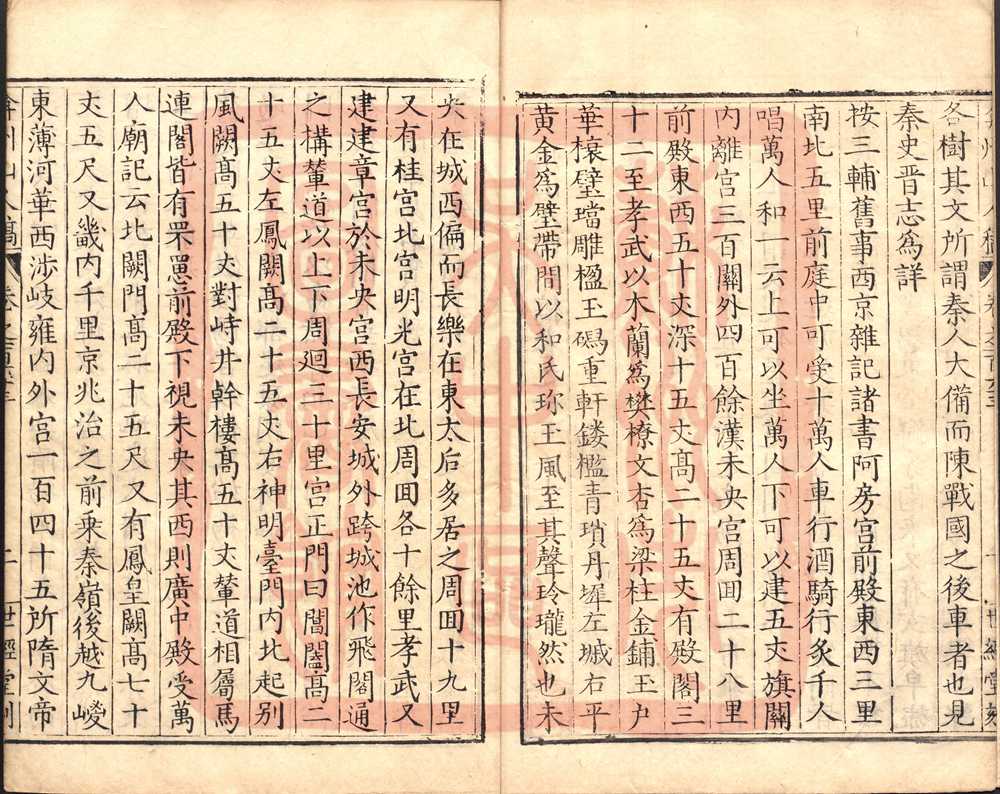 各樹其文所謂秦人大備而陳戰國之後車者也見
秦史晋志爲詳
按三輔舊事西京雜記諸書阿房宫前殿東西三里
南北五里前庭中可受十萬人車行酒騎行炙千人
唱萬人和一云上可以坐萬人下可以建五丈旗關
内離宫三百關外四百餘漢未央宫周囬二十八里
前殿東西五十丈深十五丈髙二十五丈有殿閣三
十二至孝武以木蘭爲樊橑文杏爲梁柱金鋪玉户
華榱璧璫雕楹玉磶重軒鏤檻青瑣丹墀左墄右平
黄金爲壁帶間以和氏珎玉風至其聲玲瓏然也未
央在城西偏而長樂在東太后多居之周囬十九里
又有桂宫北宫明光宫在北周囬各十餘里孝武又
建建章宫於未央宫西長安城外跨城池作飛閣通
之構輦道以上下周迴三十里宫正門曰閶闔髙二
十五丈左鳳闕髙二十五丈右神明臺門内北起别
風闕髙五十丈對峙井幹樓髙五十丈輦道相屬馬
連閣皆有罘罳前殿下視未央其西則廣中殿受萬
人廟記云北闕門髙二十五尺又有鳳皇闕髙七十
丈五尺又畿内千里京兆治之前乘秦嶺後越九嵕
東薄河華西涉岐雍内外宫一百四十五所隋文帝